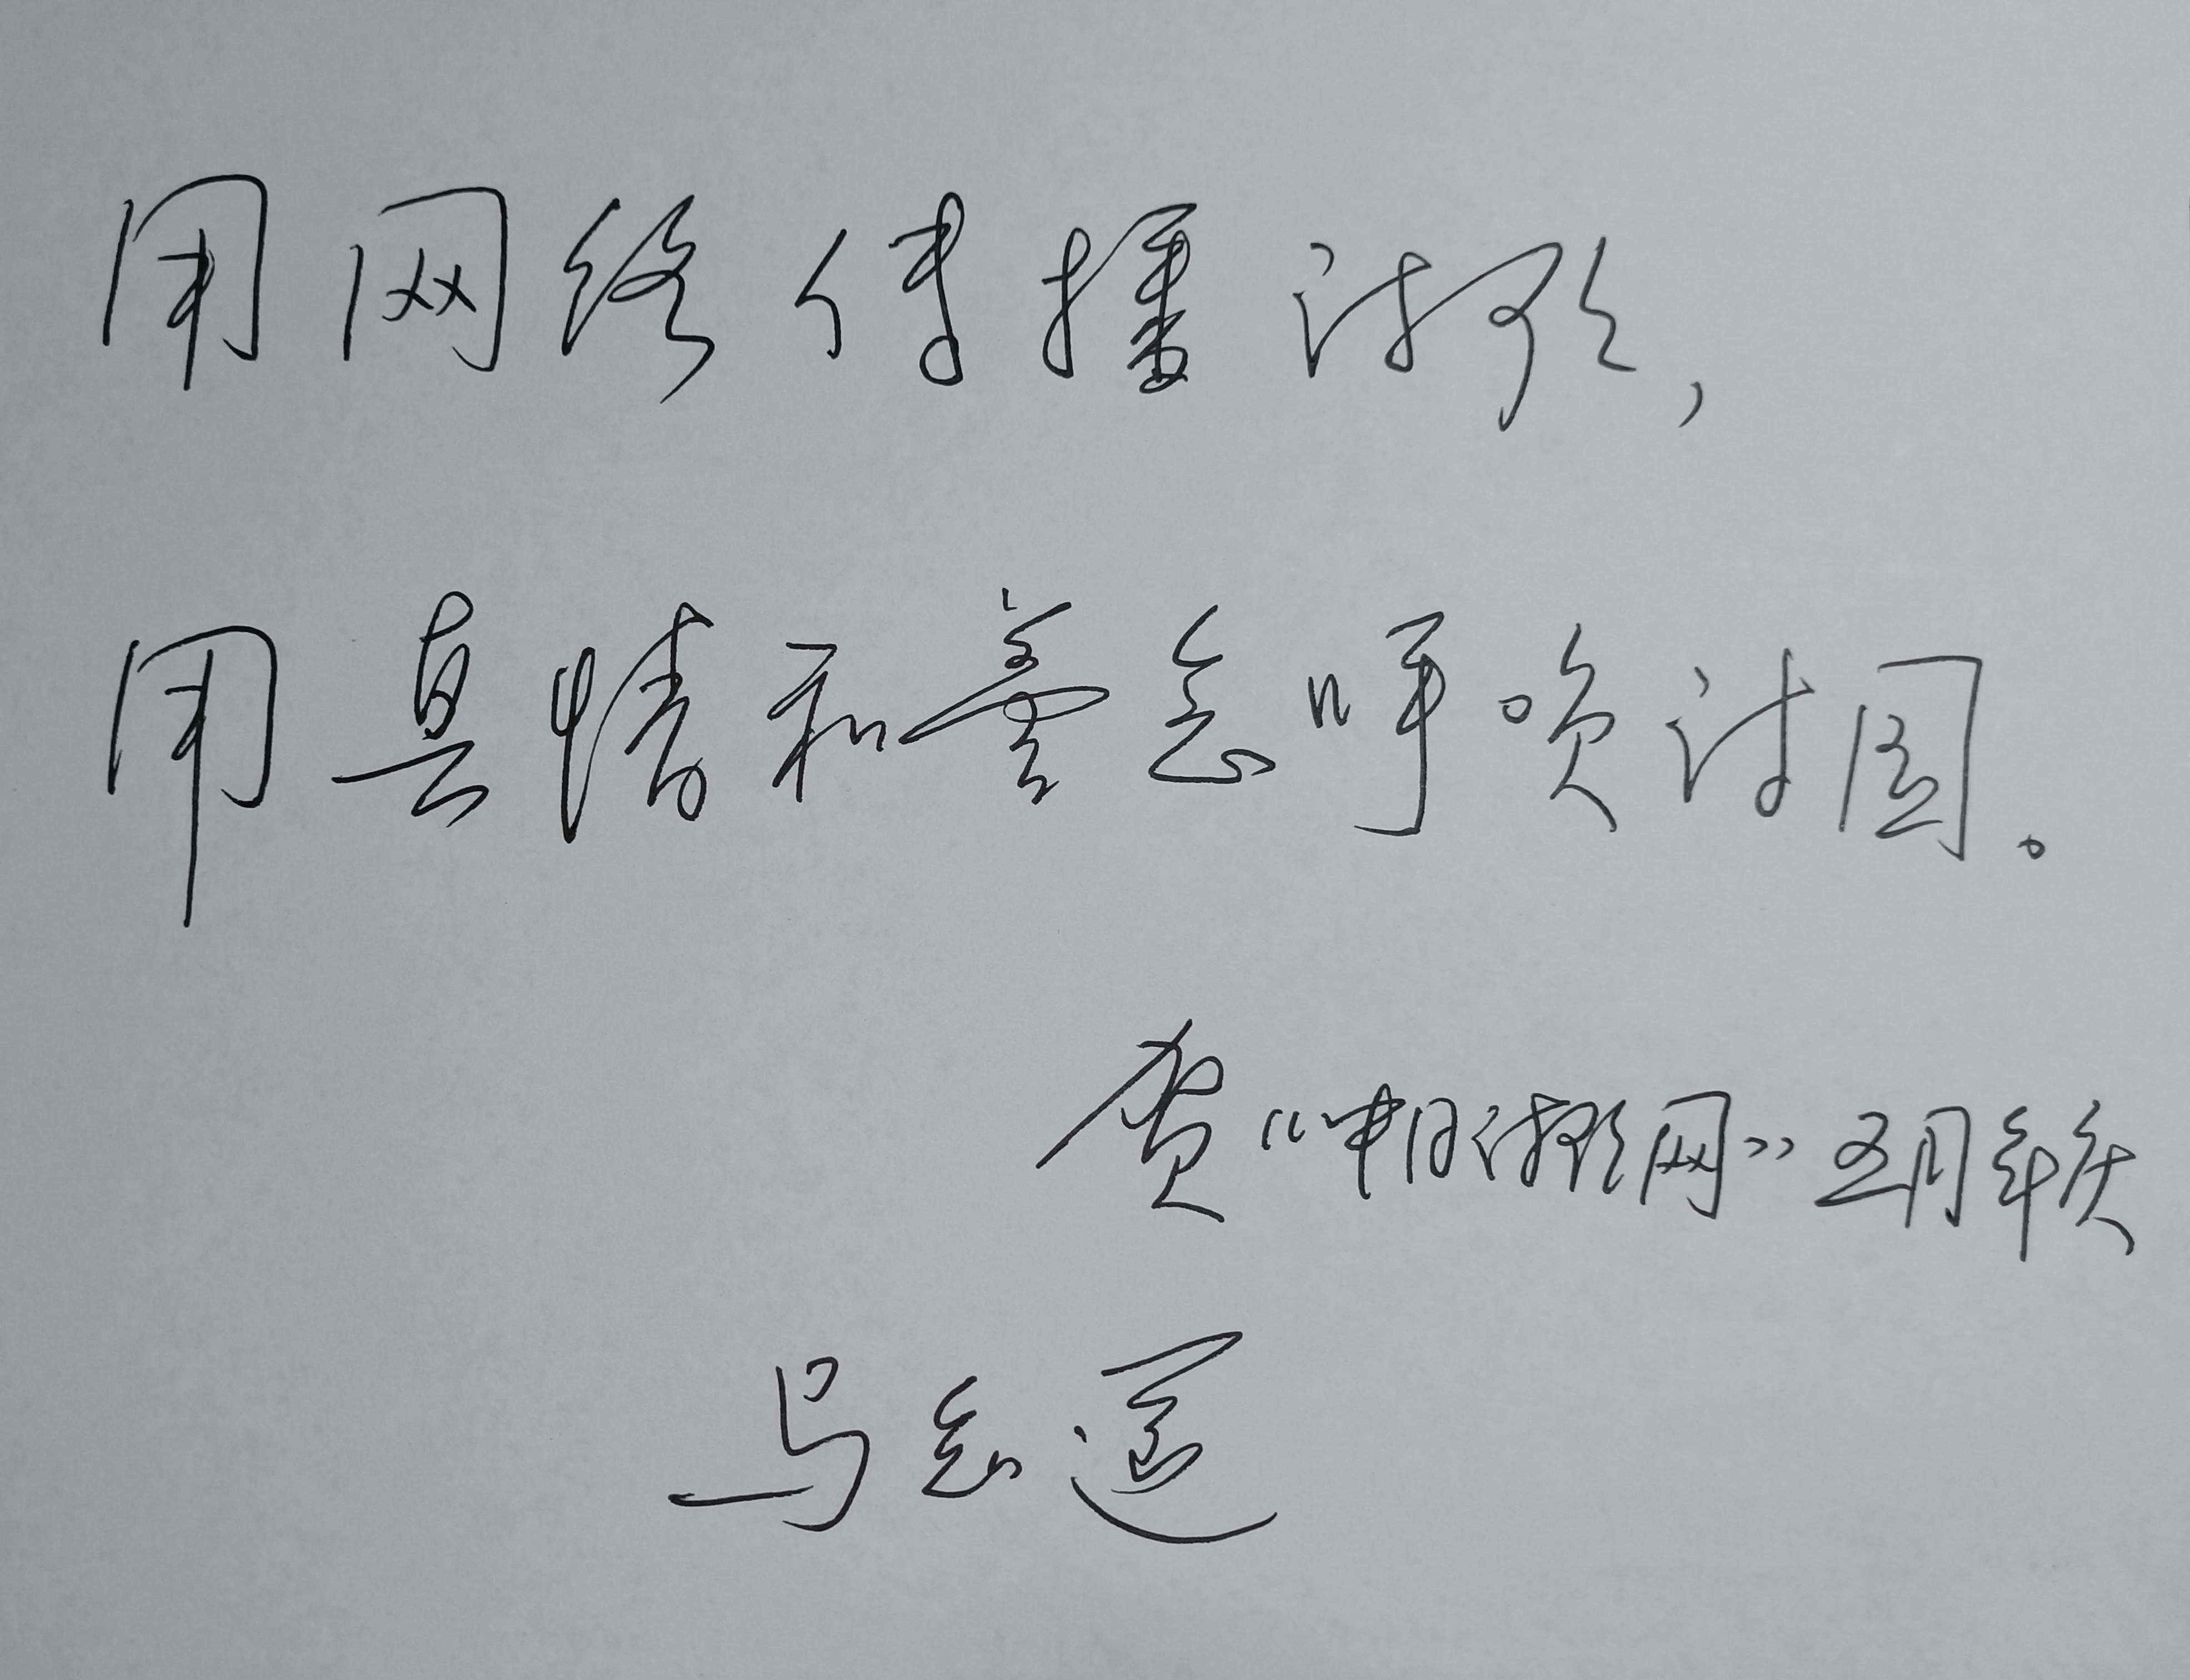 用网络传播诗歌，
用真情和善念呼唤诗国。
贺“中国诗歌网”五周年庆
马忠